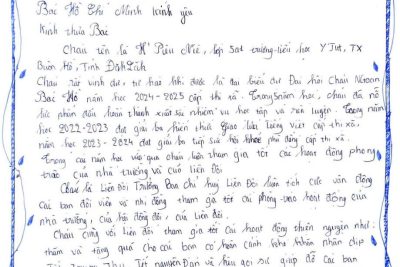 Bác Hồ Chí Minh kính yêu
Kính thưa Bác
Cháu tên là H' Niê, lớp 5a1 trường tiểu học Y Jut, TX
Buôn Hồ, Tỉnh Đắk Lắk
Cháu rất vinh dự, tự hào khi được là đại biểu dự Đại hội Cháu Ngoan
Bác Hồ năm học 2024-2025 cấp thị xã. Trong 5 năm học, cháu đã nỗ
lực phấn đấu hoàn thành xuất sắc nhiệm vụ học tập và rèn luyện. Trong năm
học 2022-2023 đạt giải ba hiền thứ Giao lưu Tiếng Việt cấp thị xã,
năm học 2023-2024 đạt giải ba tiếp sức hội khoẻ phù đổng cấp thị xã.
Trong các năm học vừa qua cháu luôn tham gia tốt các hoạt động phong
trào của nhà trường và của liên đội.
Cháu là Liên Đội Trưởng Ban chỉ huy Liên Đội luôn tích cực vận động
các bạn đội viên và nhi đồng tham gia tốt các phong trào hoạt động của
nhà trường, của hội đồng đội, của Liên đội.
Cháu cùng với Liên đội tham gia tốt các hoạt động thiện nguyện như:
thăm và tặng quà cho các bạn có hoàn cảnh khó khăn nhân dịp
Tết Trung Thu, Tết nguyên Đán và kêu gọi sự giúp đỡ các bạn